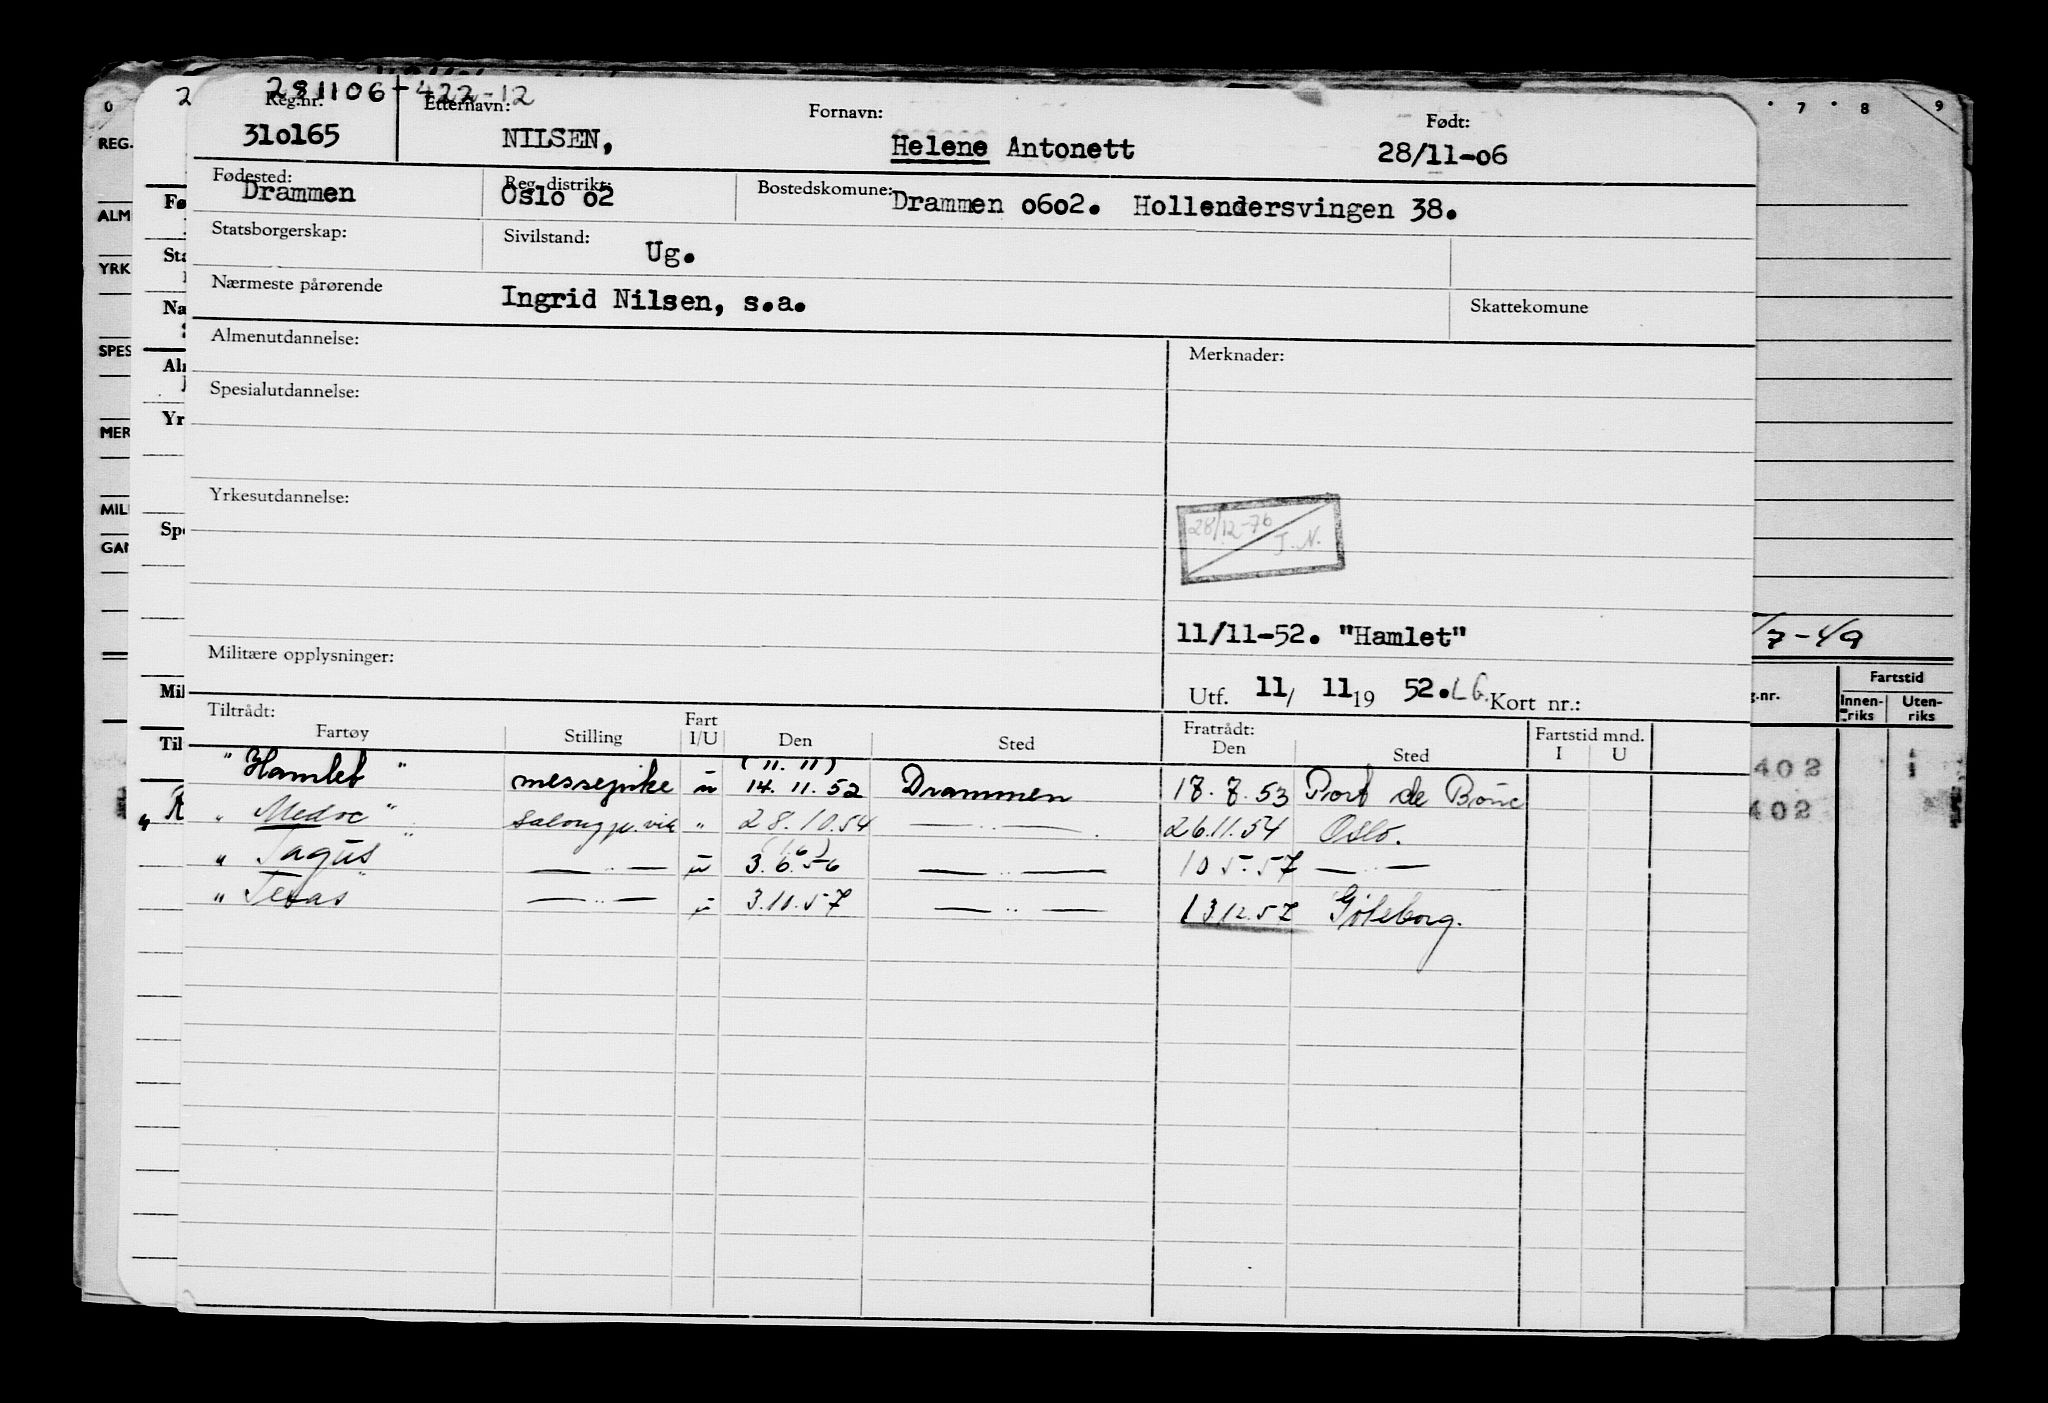 281106-422-12
Reg.nr. Etternavn: Fornavn: Født:
310165 NILSEN, Helene Antonett 28/11-06
Fødested: Reg. distrikt: Bostedskomune:
Drammen Oslo 02 Drammen 0602. Hollendersvingen 38.
Statsborgerskap: Sivilstand: Ug.
Nærmeste pårørende Ingrid Nilsen, s.a. Skattekomune
Almenutdannelse: Merknader:
Spesialutdannelse:
Yrkesutdannelse:
28/12-76 J.N.
11/11-52. "Hamlet"
Militære opplysninger:
Utf. 11/ 11 19 52. LG. Kort nr.:
Tiltrådt: Fratrådt: Fartstid mnd.
Fartøy Stilling Fart I/U Den Sted Den Sted I U
(11.11)
"Hamlet" messepike u 14.11.52 Drammen 17.8.53 Port de Bouc
"Medoc" " 28.10.54 — " — 26.11.54 Oslo.
(1.6)
"Tagus" — " — u 3.6.56 — " — 10 5-57 — " —
"Texas" — " — u 3.10.57 — " — 13 12.57 Göteborg.
0 7 8 9
REG.
ALM
YRK
SPES
MER
MIL
GAN
Fø
Sta
Næ
Alr
Yr
Spe
Mil
Til
/7-49
g.nr. Fartstid
Innen-riks Uten-riks
402 1
402